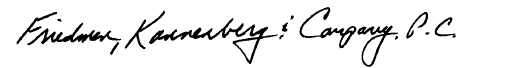 Friedman, Kannenberg & Company, P.C.